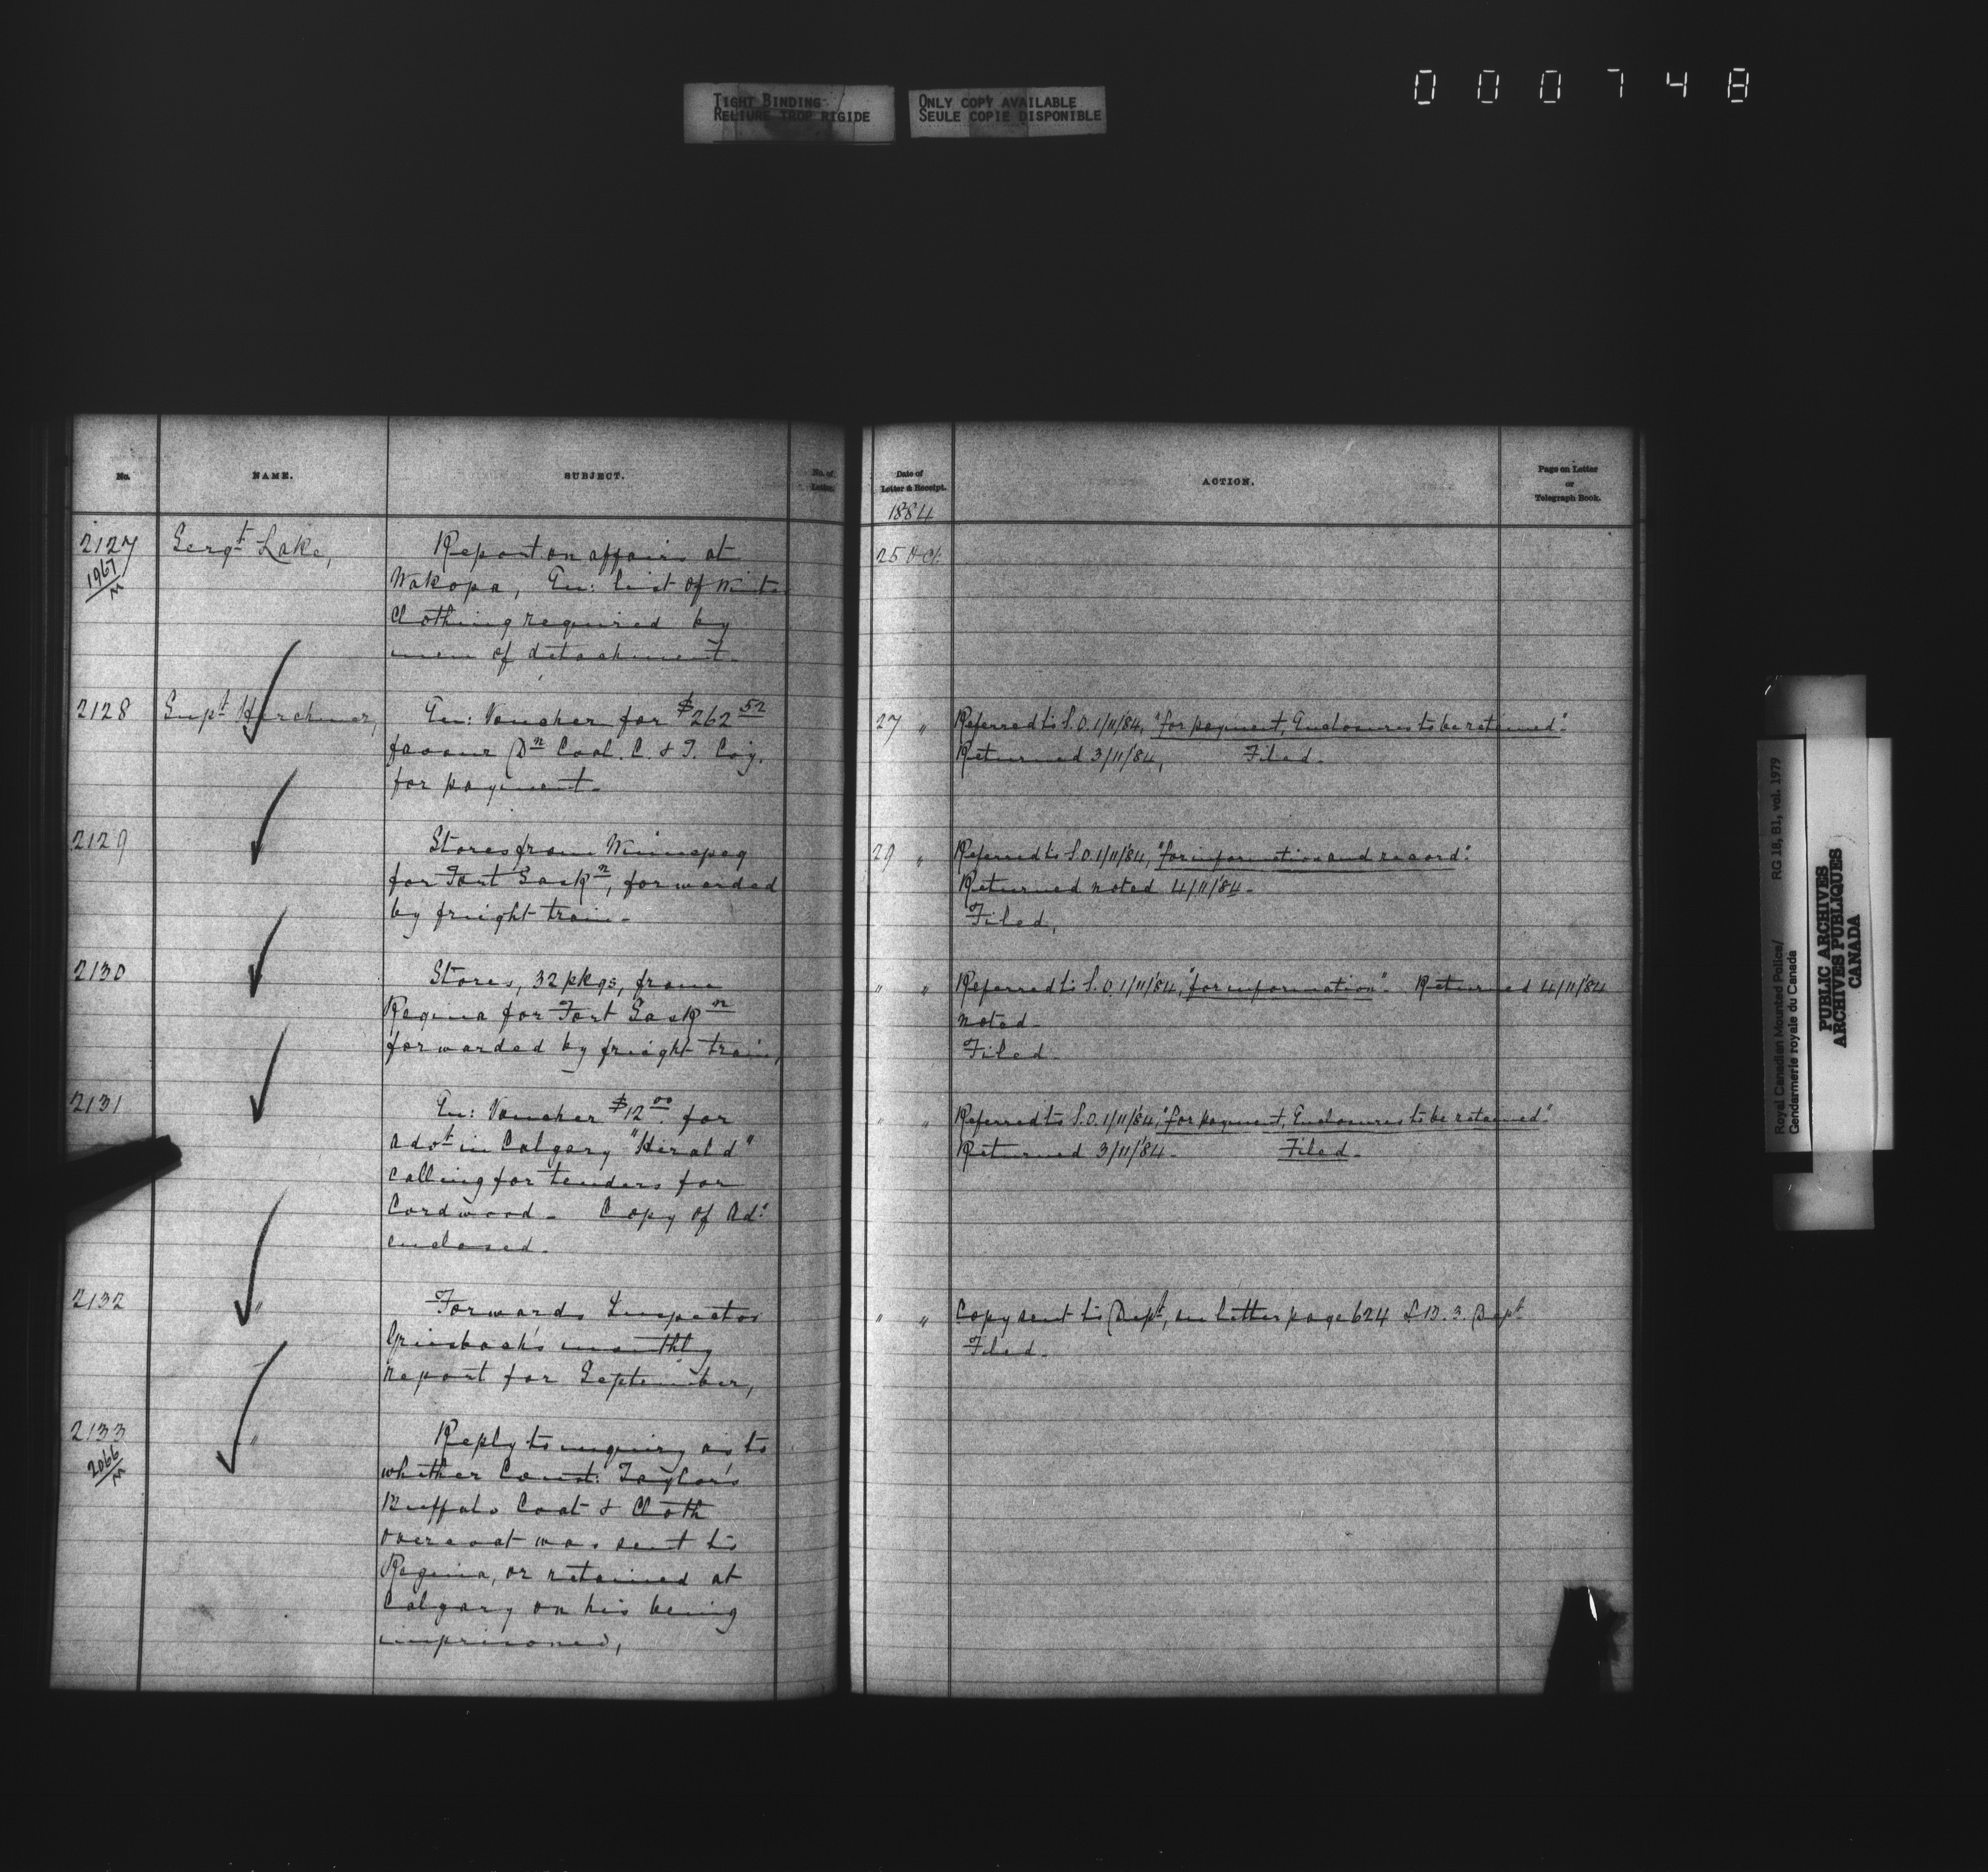 000748
TIGHT BINDING
RELIURE TROP RIGIDE
ONLY COPY AVAILABLE
SEULE COPIE DISPONIBLE
No.
NAME.
SUBJECT.
No. of
Letter.
2127
1967/M
Sergt Lake,
Report on affairs at
Wakopa, En: list of Wint.
Clothing required by
men of detachment.
2128
Supt Herchmer,
En: Voucher for $262 52
favour Dn Coal. C. & T. Coy.
for payment.
2129
Stores from Winnepeg
for Fort Saskn, forwarded
by freight train.
2130
Stores, 32 pkgs, from
Regina for Fort Saskn
forwarded by freight train,
2131
En: Voucher $12 00 for
Advt in Calgary "Herald"
calling for tenders for
Cordwood. Copy of Adt
enclosed.
2132
"
Forwards Inspector
Griesbach's monthly
report for September,
2133
2066/M
"
Reply to enquiry as to
whether Const: Taylor's
Buffalo Coat & Cloth
overcoat was sent to
Regina, or retained at
Calgary on his being
imprisoned,
Date of
Letter & Receipt.
ACTION.
Page on Letter
or
Telegraph Book.
1884
25 Oct.
27 "
Referred to S.O. 1/11/84, "for payment, Enclosures to be retained".
Returned 3/11/84, Filed.
29 "
Referred to S.O. 1/11/84, "for information and record".
Returned noted 4/11/84.
Filed,
" "
Referred to S.O. 1/11/84, "for information". Returned 4/11/84
noted.
Filed.
" "
Referred to S.O. 1/11/84, "for payment, Enclosures to be retained".
Returned 3/11/84. Filed.
" "
Copy sent to Dept, in letter page 624 L.B. 3. Dept
Filed.
Royal Canadian Mounted Police/ RG 18, B1, vol. 1979
Gendarmerie royale du Canada
PUBLIC ARCHIVES
ARCHIVES PUBLIQUES
CANADA